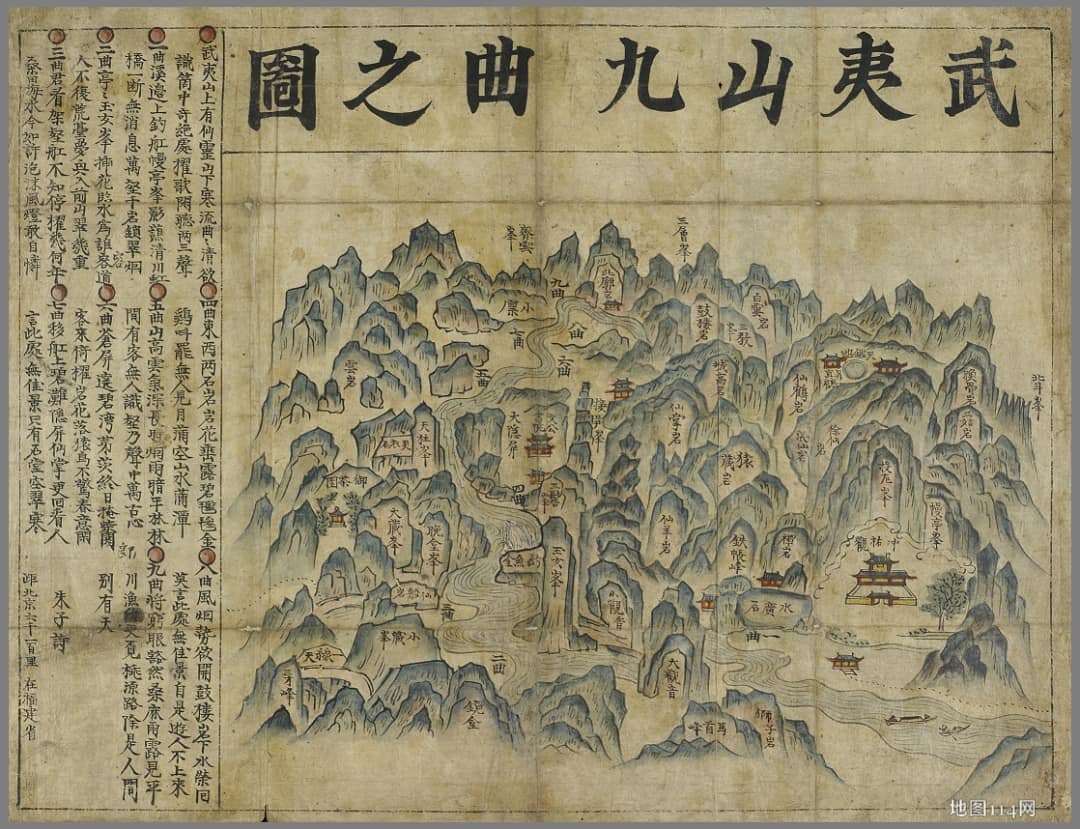 武夷山九曲之圖
武夷山上有仙靈山下寒流曲〻清欲
識箇中奇絶處櫂歌閑聽兩三聲
一曲溪邉上釣舡幔亭峯影蘸清川虹
橋一断無消息萬壑千岩鎖翠烟
二曲亭〻玉女峯揷花臨水為誰容道
人不復荒臺夢興入前山翠幾重
三曲君看架壑舡不知停櫂幾何年
桑田海水今如許泡沫風燈敢自憐
四曲東西兩石岩岩花垂露碧 金
鷄呌罷無人見月滿空山水滿潭
五曲山高雲氣深長時烟雨暗平林林
間有客無人識 乃聲中萬古心
六曲蒼屏遶碧湾茅茨終日掩柴關
客來倚櫂岩花落猿鳥不驚春意閑
七曲移舡上碧灘隱屏仙掌更回看人
言此處無佳景只有石堂空翠寒
八曲風烟勢欲開鼓樓岩下水縈回
莫言此處無佳景自是遊人不上來
九曲將窮眼豁然桑麻雨露見平
川漁郎更覓桃源路除是人間
郎
別有天
朱子詩
北京六千一百里 在福建省
三層峯
齊雲峯
北廊岩
九曲
小
八曲
七曲
六曲
五曲
白雲岩
鼓樓岩
三教峯
城高岩
雲岩
仙鶴岩
北斗峯
仙掌岩
接笋峯
大隐屏
文公
天柱峯
猿蔵岩
徐仙岩
御茶园
四曲
大蔵峯
仙羊岩
幔亭峯
冲祐觀
鉄帳峰
玉女峯
釣魚臺
小觀音
水竇石
三曲
小蔵峯
一線天
二曲
一曲
大觀音
獅子岩
馬首峰
地图114网